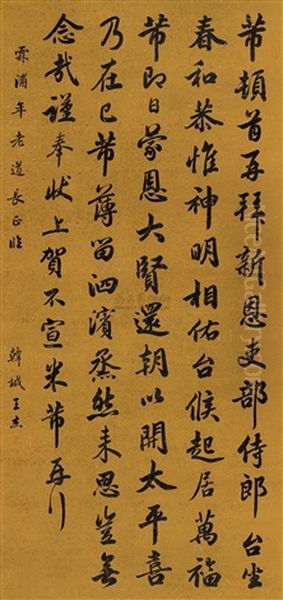 芾頓首再拜新恩吏部侍郎台坐
春和恭惟神明相佑台候起居萬福
芾即日蒙恩大賢還朝以開太平喜
乃在已芾薄留泗濱烝然來思豈無
念哉謹奉狀上賀不宣米芾再拜
霖浦年老道長正臨
韓城王杰